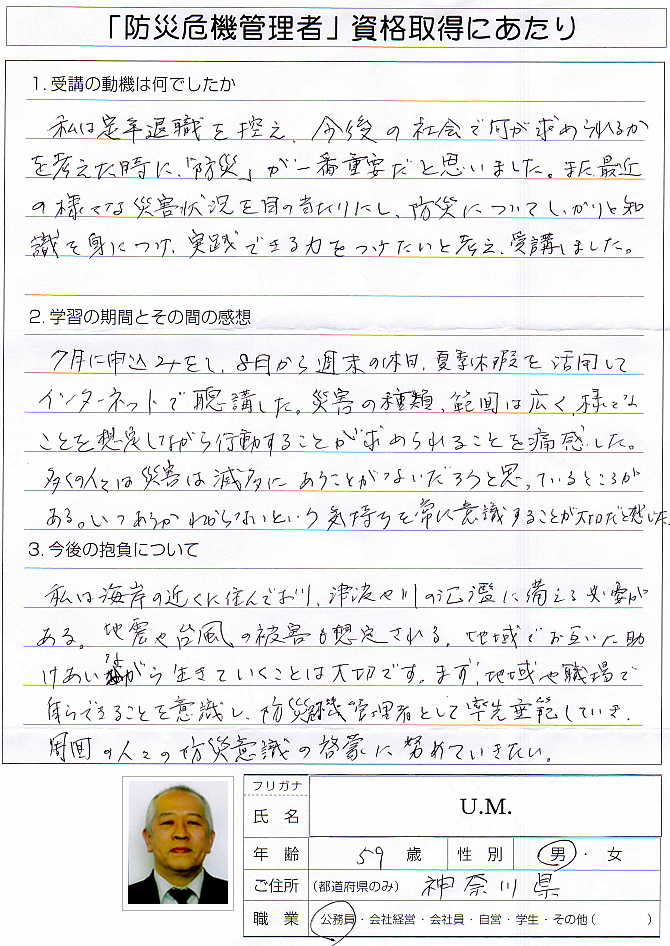 「防災危機管理者」資格取得にあたり
1. 受講の動機は何でしたか
私は定年退職を控え、今後の社会で何が求められるか
を考えた時に、「防災」が一番重要だと思いました。また最近
の様々な災害状況を目の当たりにし、防災についてしっかりと知
識を身につけ、実践できる力をつけたいと考え、受講しました。
2. 学習の期間とその間の感想
7月に申込みをし、8月から週末の休日、夏季休暇を活用して
インターネットで聴講した。災害の種類、範囲は広く、様々な
ことを想定しながら行動することが求められることを痛感した。
多くの人々は災害は滅多にあうことがないだろうと思っているところが
ある。いつあうかわからないという気持ちを常に意識することが大切だと感じた。
3. 今後の抱負について
私は海岸の近くに住んでおり、津波や川の氾濫に備える必要が
ある。地震や台風の被害も想定される。地域でお互いに助
けあいながら生きていくことは大切です。まず、地域や職場で
自らできることを意識し、防災危機管理者として率先垂範していき、
周囲の人々の防災意識の啓蒙に努めていきたい。
フリガナ
氏 名 U.M.
年 齢 59 歳 性 別 男・女
ご住所 (都道府県のみ) 神奈川県
職 業 公務員・会社経営・会社員・自営・学生・その他( )